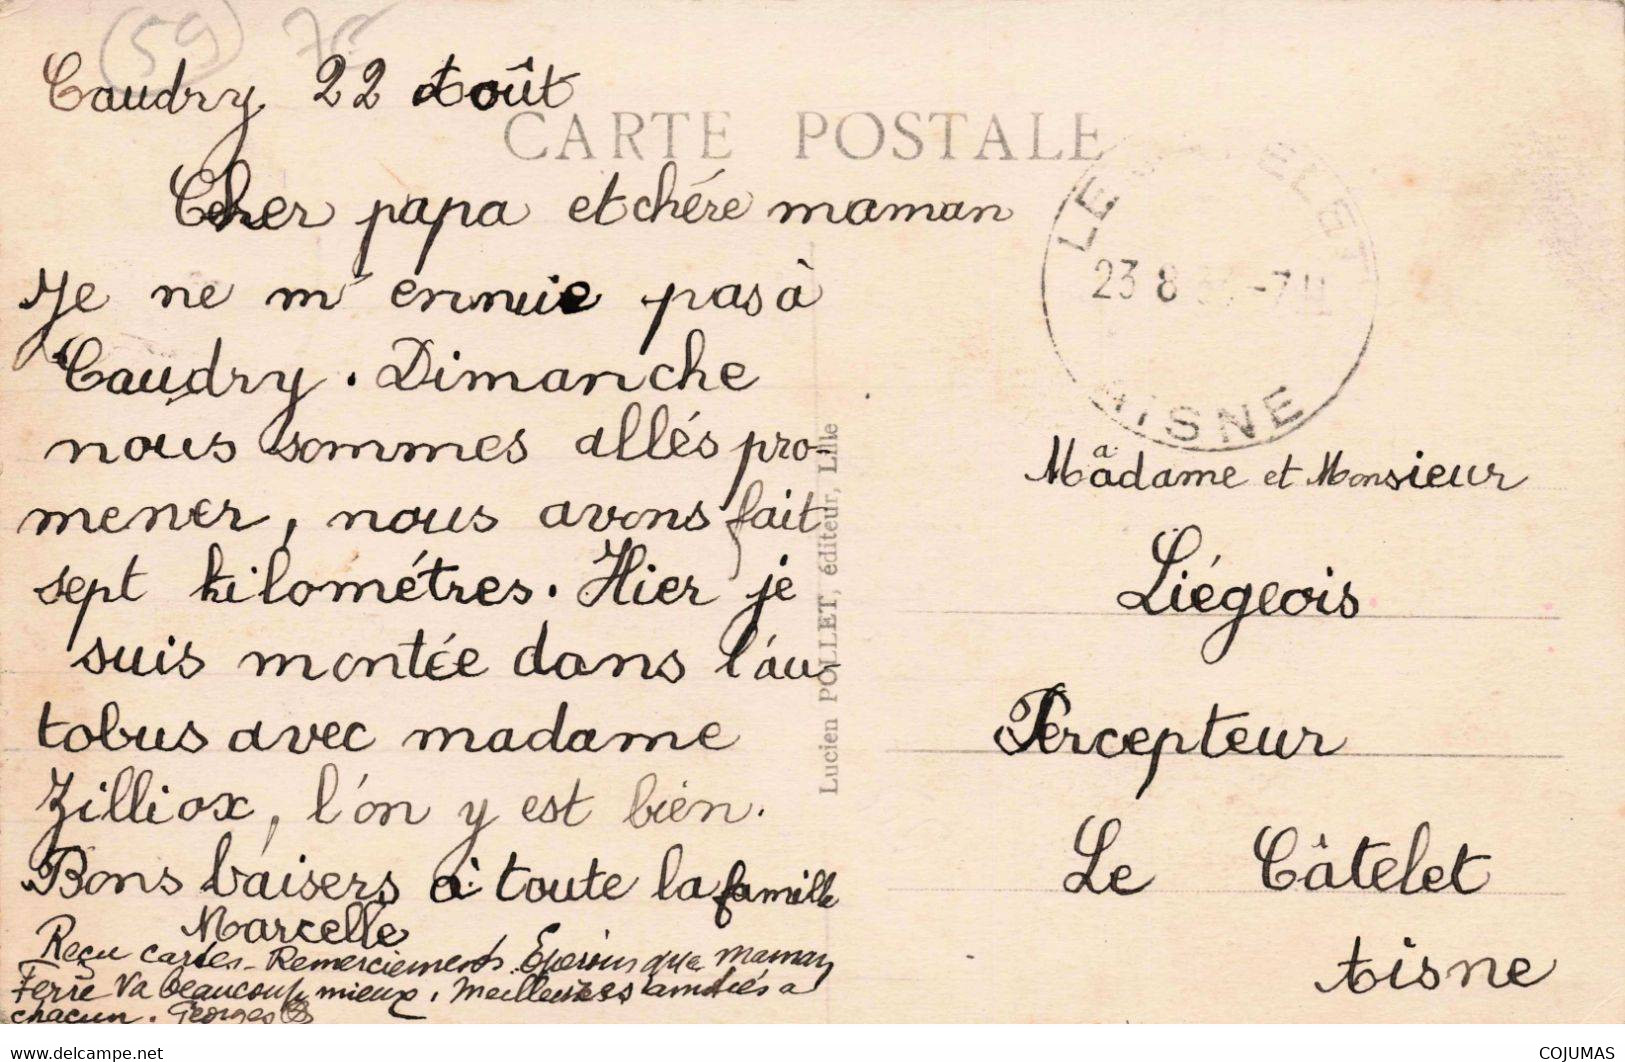 (59)
Caudry 22 Août
CARTE POSTALE
Cher papa et chére maman
Je ne m'ennuie pas à
Caudry. Dimanche
nous sommes allés pro-
mener, nous avons fait
sept kilométres. Hier je
suis montée dans l'au-
tobus avec madame
Zilliox, l'on y est bien.
Bons baisers à toute la famille
Marcelle
Reçu cartes - Remerciements. Espérons que maman
Ferre va beaucoup mieux. Meilleures amitiés a
chacun. Georges
Lucien POLLET, éditeur, Lille
23 8
AISNE
Madame et Monsieur
Liégeois
Percepteur
Le Câtelet
Aisne
www.delcampe.net
COJUMAS